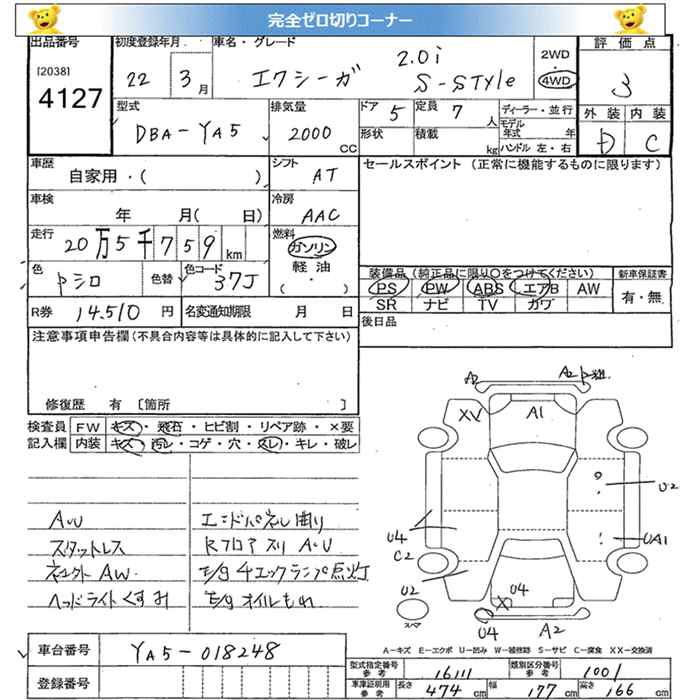 完全ゼロ切りコーナー
出品番号 初度登録年月 車名・グレード 2WD 評価点
[2038] 4127 22年 3月 エクシーガ 2.0i S-STYLE 4WD 3
型式 排気量 ドア 5 定員 7人 ディーラー・並行 外装 内装
DBA-YA5 2000cc 形状 積載 kg モデル年式 年 D C
ハンドル 左・右
車歴 シフト セールスポイント (正常に機能するものに限ります)
自家用・( ) AT
車検 年 月( 日) 冷房 AAC
走行 20万5千759km 燃料 ガソリン
軽油
( ・ )
色 色替 色コード 37J 装備品 (純正品に限り○をつけてください) 新車保証書
シロ PS PW ABS エアB AW 有・無
R券 14,510円 名変通知期限 月 日 SR ナビ TV カワ
注意事項申告欄(不具合内容等は具体的に記入して下さい) 後日品
修復歴 有 [箇所 ]
検査員 FW キズ・飛石・ヒビ割・リペア跡・×要
記入欄 内装 キズ・汚レ・コゲ・穴・スレ・キレ・破レ
A2 A2
XV A1
U2
U4 C2 UA1
U2 U4
U4 A2
スペア
AUU エンドパネル曲り
スタットレス Rフロアスリ AUU
ネェクトAW. E/gチェックランプ点灯
ヘッドライトくすみ E/gオイルもれ
A-キズ E-エクボ U-凹み W-補修跡 S-サビ C-腐食 XX-交換済
車台番号 YA5-018248
型式指定番号 参考 16111 類別区分番号 参考 1001
登録番号
車庫証明用 参考 長さ 474cm 幅 177cm 高さ 166cm